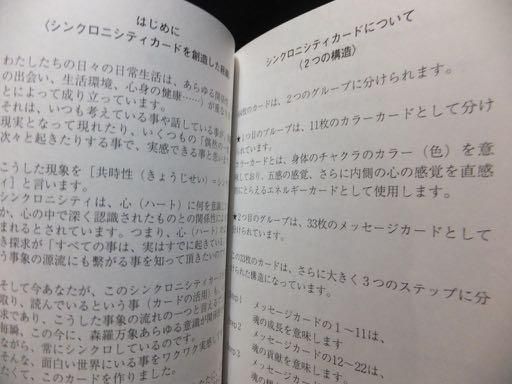 はじめに
(シンクロニシティカードを創造した経緯
わたしたちの日々の日常生活は、あらゆる関係性
の出会い、生活環境、心身の健康……)が重
によって成り立っています。
それは、いつも考えている事や話している事が
現実となって現れたり、いくつもの「偶然の一
次々と起きたりする事で、実感できる事と思い
こうした現象を[共時性(きょうじせい)=シン
ィ]と言います。
シンクロニシティは、心(ハート)に何を意識
か、心の中で深く認識されたものとの関係性に
まれるとされています。つまり、心(ハート)の
き探求が「すべての事は、実はすでに起きている
う事象の源流にも繋がる事を知って頂きたいので
そして今あなたが、このシンクロニシティカード
取り、読んでいるという事(カードの活用)も、
求であり、こうした事象の流れの一つと言えます
勿論、この今に、森羅万象あらゆる意識が関係
ながら、常にシンクロしているのです。
そんな、面白い世界にいる事をワクワク実感して
たくて、このカードを作りました。
シンクロニシティカードについて
(2つの構造)
枚のカードは、2つのグループに分けられます。
★1つ目のグループは、11枚のカラーカードとして分け
れています。
カラーカードとは、身体のチャクラのカラー(色)を意
しており、五感の感覚、さらに内側の心の感覚を直感
的にとらえるエネルギーカードとして使用します。
★2つ目のグループは、33枚のメッセージカードとして
分けられています。
この33枚のカードは、さらに大きく3つのステップに分
れた構造になっています。
ep 1 メッセージカードの1~11は、
魂の成長を意味します
ep 2 メッセージカードの12~22は、
魂の貢献を意味します
3 メッセージカードの